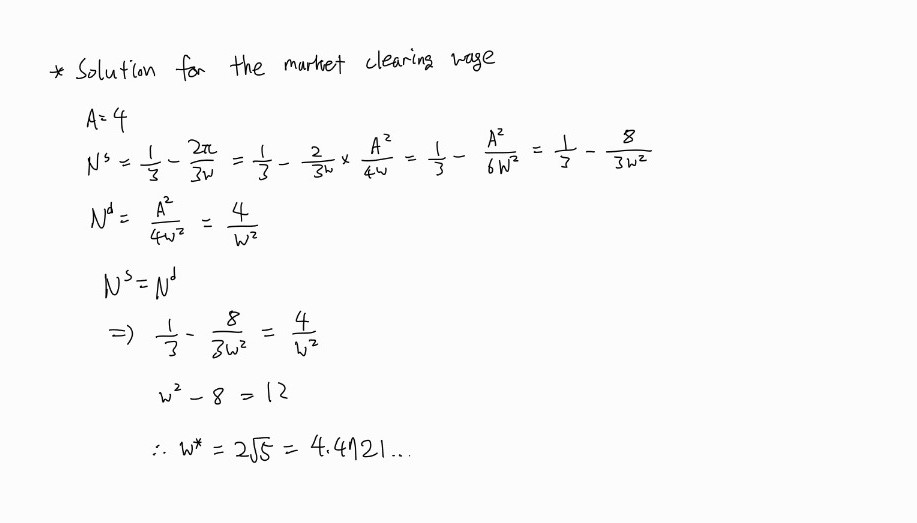 * Solution for the market clearing wage
A=4
N^s = 1/3 - 2π/3w = 1/3 - 2/3w × A^2/4w = 1/3 - A^2/6w^2 = 1/3 - 8/3w^2
N^d = A^2/4w^2 = 4/w^2
N^s = N^d
⇒ 1/3 - 8/3w^2 = 4/w^2
w^2 - 8 = 12
∴ w* = 2√5 = 4.4721...